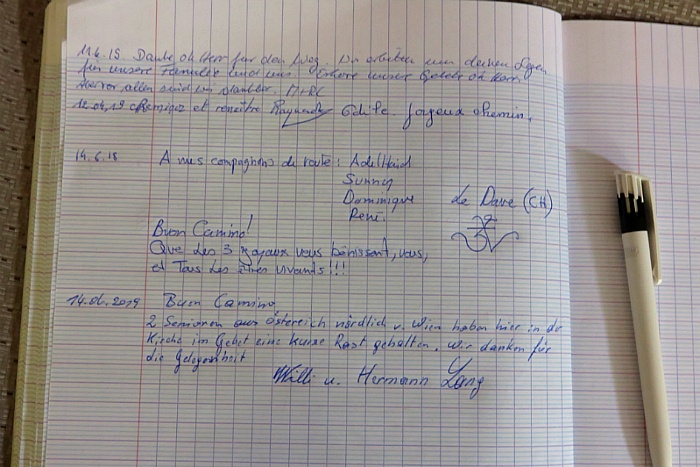 11.6.19 Danke oh Herr für den Weg. Wir erbitten um deinen Segen
für unsere Familie und uns. Erhöre unsere Gebete oh Herr
vor allem sind wir dankbar. M+RC
12.06.19 et Raymonde Edite. Joyeux chemin.
14.6.18 A mes compagnons de route: Adelhaid
Sunny
Dominique
René.
Le Dave (CH)
Buen Camino!
Que Les 3 Joyaux vous bénissent, vous,
et Tous Les êtres vivants!!!
14.06.2019 Buen Camino
2 Senioren aus Östereich nördlich v. Wien haben hier in der
Kirche im Gebet eine kurze Rast gehalten. Wir danken für
die Gelegenheit
Willi u. Hermann Lang